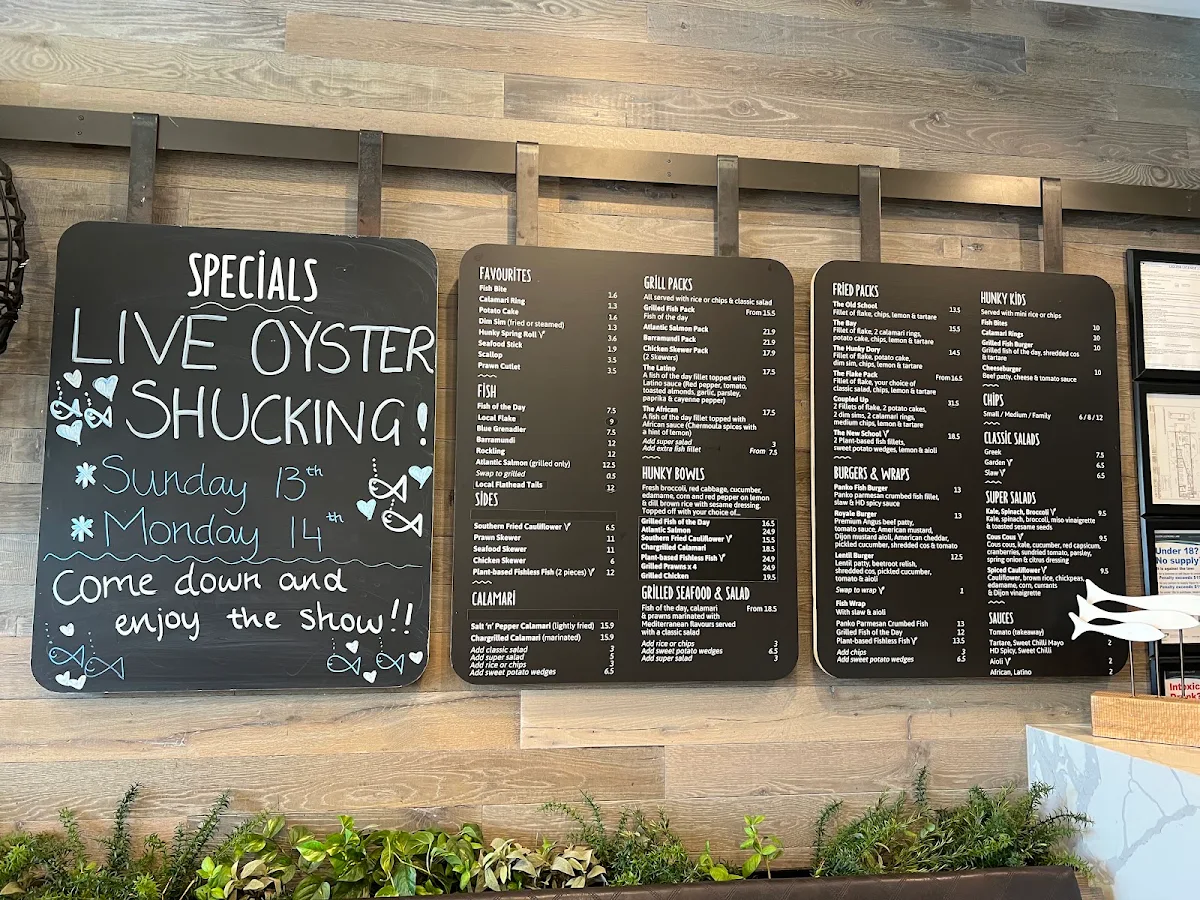 SPECIALS
LIVE OYSTER
SHUCKING!
Sunday 13th
Monday 14th
Come down and
enjoy the show!!
FAVOURITES
Fish Bite 1.6
Calamari Ring 1.3
Potato Cake 1.6
Dim Sim (fried or steamed) 1.3
Hunky Spring Roll 3.6
Seafood Stick 1.9
Scallop 3.5
Prawn Cutlet 3.5
FISH
Fish of the Day 7.5
Local Flake 9
Blue Grenadier 7.5
Barramundi 12
Rockling 12
Atlantic Salmon (grilled only) 12.5
Swap to grilled 0.5
Local Flathead Tails 12
SIDES
Southern Fried Cauliflower 6.5
Prawn Skewer 11
Seafood Skewer 11
Chicken Skewer 6
Plant-based Fishless Fish (2 pieces) 12
CALAMARI
Salt 'n' Pepper Calamari (lightly fried) 15.9
Chargrilled Calamari (marinated) 15.9
Add classic salad 3
Add super salad 5
Add rice or chips 3
Add sweet potato wedges 6.5
GRILL PACKS
All served with rice or chips & classic salad
Grilled Fish Pack From 15.5
Fish of the day
Atlantic Salmon Pack 21.9
Barramundi Pack 21.9
Chicken Skewer Pack 17.9
(2 Skewers)
The Latino 17.5
A fish of the day fillet topped with
Latino sauce (Red pepper, tomato,
toasted almonds, garlic, parsley,
paprika & cayenne pepper)
The African 17.5
A fish of the day fillet topped with
African sauce (Chermoula spices with
a hint of lemon)
Add super salad 3
Add extra fish fillet From 7.5
HUNKY BOWLS
Fresh broccoli, red cabbage, cucumber,
edamame, corn and red pepper on lemon
& dill brown rice with sesame dressing.
Topped off with your choice of...
Grilled Fish of the Day 16.5
Atlantic Salmon 24.9
Southern Fried Cauliflower 15.5
Chargrilled Calamari 18.5
Plant-based Fishless Fish 24.9
Grilled Prawns x 4 24.9
Grilled Chicken 19.5
GRILLED SEAFOOD & SALAD
Fish of the day, calamari From 18.5
& prawns marinated with
Mediterranean flavours served
with a classic salad
Add rice or chips 3
Add sweet potato wedges 6.5
Add super salad 3
FRIED PACKS
The Old School 13.5
Fillet of flake, chips, lemon & tartare
The Bay 15.5
Fillet of flake, 2 calamari rings,
potato cake, chips, lemon & tartare
The Hunky Dory 14.5
Fillet of flake, potato cake,
dim sim, chips, lemon & tartare
The Flake Pack From 16.5
Fillet of flake, your choice of
classic salad, chips, lemon & tartare
Coupled Up 31.5
2 Fillets of flake, 2 potato cakes,
2 dim sims, 2 calamari rings,
medium chips, lemon & tartare
The New School 18.5
2 Plant-based fish fillets,
sweet potato wedges, lemon & aioli
BURGERS & WRAPS
Panko Fish Burger 13
Panko parmesan crumbed fish fillet,
slaw & HD spicy sauce
Royale Burger 13
Premium Angus beef patty,
tomato sauce, American mustard,
Dijon mustard aioli, American cheddar,
pickled cucumber, shredded cos & tomato
Lentil Burger 12.5
Lentil patty, beetroot relish,
shredded cos, pickled cucumber,
tomato & aioli
Swap to wrap 1
Fish Wrap
With slaw & aioli
Panko Parmesan Crumbed Fish 13
Grilled Fish of the Day 12
Plant-based Fishless Fish 13.5
Add chips 3
Add sweet potato wedges 6.5
HUNKY KIDS
Served with mini rice or chips
Fish Bites 10
Calamari Rings 10
Grilled Fish Burger 10
Grilled fish of the day, shredded cos
& tartare
Cheeseburger 10
Beef patty, cheese & tomato sauce
CHIPS
Small / Medium / Family 6 / 8 / 12
CLASSIC SALADS
Greek 7.5
Garden 6.5
Slaw 6.5
SUPER SALADS
Kale, Spinach, Broccoli 9.5
Kale, spinach, broccoli, miso vinaigrette
& toasted sesame seeds
Cous Cous 9.5
Cous cous, kale, cucumber, red capsicum,
cranberries, sundried tomato, parsley,
spring onion & citrus dressing
Spiced Cauliflower 9.5
Cauliflower, brown rice, chickpeas,
edamame, corn, currants
& Dijon vinaigrette
SAUCES
Tomato (takeaway)
Tartare, Sweet Chilli Mayo 2
HD Spicy, Sweet Chilli
Aioli 2
African, Latino 2
Under 18?
No supply